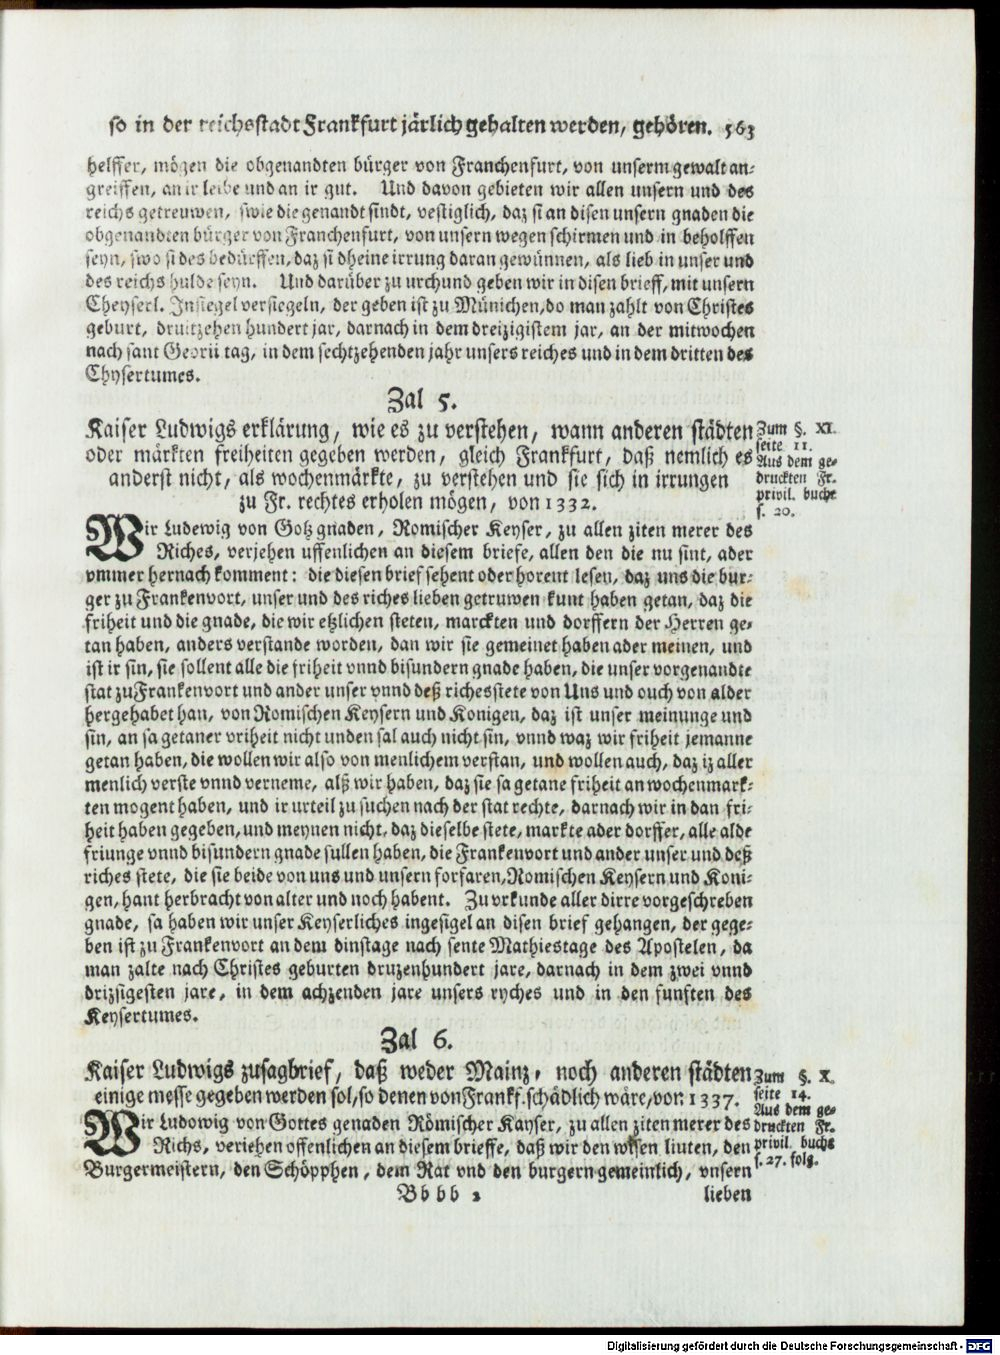 so in der reichsstadt Frankfurt järlich gehalten werden, gehören. 563
helffer, mögen die obgenandten bürger von Franchenfurt, von unserm gewalt an-
greiffen, an ir leibe und an ir gut. Und davon gebieten wir allen unsern und des
reichs getreuwen, swie die genandt sindt, vestiglich, daz si an disen unsern gnaden die
obgenandten bürger von Franchenfurt, von unsern wegen schirmen und in beholffen
seyn, swo si des bedürffen, daz si dheine irrung daran gewünnen, als lieb in unser und
des reichs hulde seyn. Und darüber zu urchund geben wir in disen brieff, mit unsern
Cheyserl. Insiegel versiegeln, der geben ist zu Münichen, do man zahlt von Christes
geburt, druitzehen hundert jar, darnach in dem dreizigistem jar, an der mitwochen
nach sant Georii tag, in dem sechtzehenden jahr unsers reiches und in dem dritten des
Chysertumes.
Zal 5.
Kaiser Ludwigs erklärung, wie es zu verstehen, wann anderen städten
oder märkten freiheiten gegeben werden, gleich Frankfurt, daß nemlich es
anderst nicht, als wochenmärkte, zu verstehen und sie sich in irrungen
zu Fr. rechtes erholen mögen, von 1332.
Zum §. XI.
seite 11.
Aus dem ge-
druckten Fr.
privil. buche
s. 20.
Wir Ludewig von Gotz gnaden, Romischer Keyser, zu allen ziten merer des
Riches, verjehen uffenlichen an diesem briefe, allen den die nu sint, ader
vmmer hernach komment: die diesen brief sehent oder horent lesen, daz uns die bur-
ger zu Frankenvort, unser und des riches lieben getruwen kunt haben getan, daz die
friheit und die gnade, die wir etzlichen steten, marckten und dorffern der Herren ge-
tan haben, anders verstande worden, dan wir sie gemeinet haben ader meinen, und
ist ir sin, sie sollent alle die friheit vnnd bisundern gnade haben, die unser vorgenandte
stat zu Frankenvort und ander unser vnnd deß riches stete von Uns und ouch von alder
hergehabet han, von Romischen Keysern und Konigen, daz ist unser meinunge und
sin, an sa getaner vriheit nicht unden sal auch nicht sin, vnnd waz wir friheit jemanne
getan haben, die wollen wir also von menlichem verstan, und wollen auch, daz iz aller
menlich verste vnnd verneme, alß wir haben, daz sie sa getane friheit an wochenmark-
ten mogent haben, und ir urteil zu suchen nach der stat rechte, darnach wir in dan fri-
heit haben gegeben, und meynen nicht, daz dieselbe stete, markte ader dorffer, alle alde
friunge vnnd bisundern gnade sullen haben, die Frankenvort und ander unser und deß
riches stete, die sie beide von uns und unsern forfaren, Romischen Keysern und Koni-
gen, hant herbracht von alter und noch habent. Zu vrkunde aller dirre vorgeschreben
gnade, sa haben wir unser Keyserliches ingesigel an disen brief gehangen, der gege-
ben ist zu Frankenvort an dem dinstage nach sente Mathiestage des Apostelen, da
man zalte nach Christes geburten druzenhundert jare, darnach in dem zwei vnnd
drizsigesten jare, in dem achzenden jare unsers ryches und in den funften des
Keysertumes.
Zal 6.
Kaiser Ludwigs zusagbrief, daß weder Mainz, noch anderen städten
einige messe gegeben werden sol, so denen von Frankf. schädlich wäre, von 1337.
Zum §. X.
seite 14.
Aus dem ge-
druckten Fr.
privil. buche
s. 27. folg.
Wir Ludowig von Gottes genaden Römischer Kayser, zu allen ziten merer des
Richs, veriehen offenlichen an diesem brieffe, daß wir den wisen liuten, den
Burgermeistern, den Schöpphen, dem Rat vnd den burgern gemeinlich, vnsern
Bb bb 2 lieben
Digitalisierung gefördert durch die Deutsche Forschungsgemeinschaft - DFG